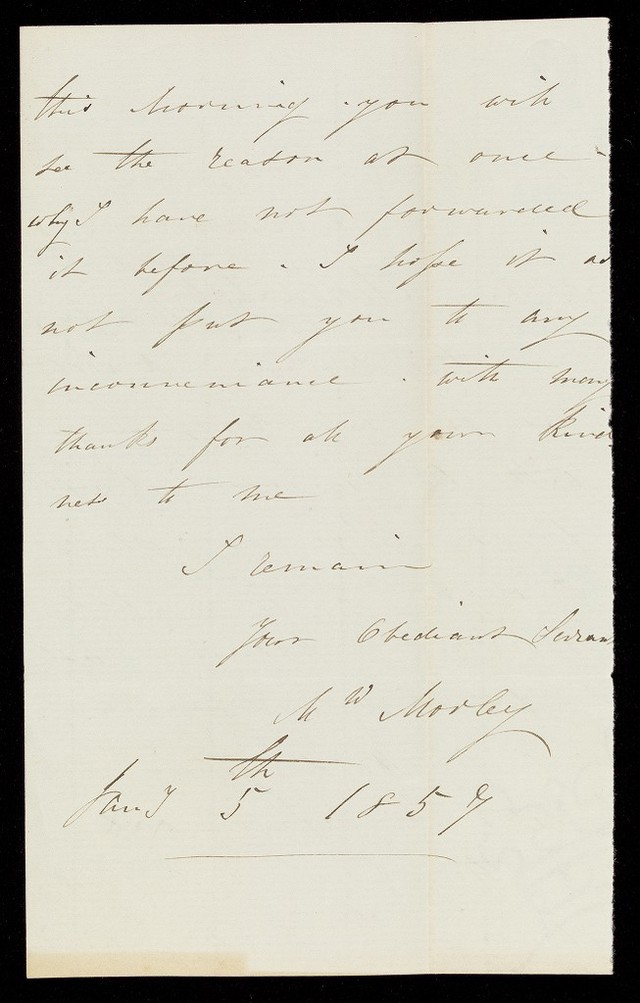 this Morning . you will
see the reason at once -
why I have not forwarded
it before . I hope it as
not put you to any
inconveniance . with many
thanks for all your kind
ness to me
I remain
Your Obediant Servan
M W Morley
Jany 5th 1857